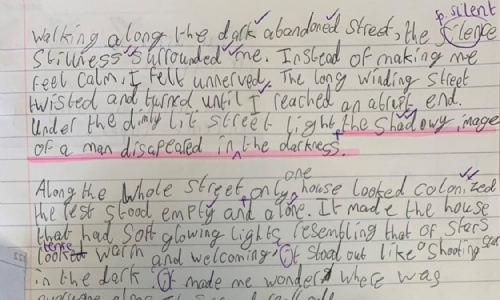 sp. silent
walking along the dark abandoned street, the silence
stillness surrounded me. Instead of making me
feel calm, I felt unnerved. The long winding street
twisted and turned until I reached an abrupt end.
Under the dimly lit street light the shadowy image
of a man disapeared in the darkness.
one
Along the whole street only house looked colonized
the rest stood empty and alone. It made the house
that had soft glowing lights resembling that of stars
tense
looked warm and welcoming. It stood out like a shooting star
in the dark. It made me wonder where was